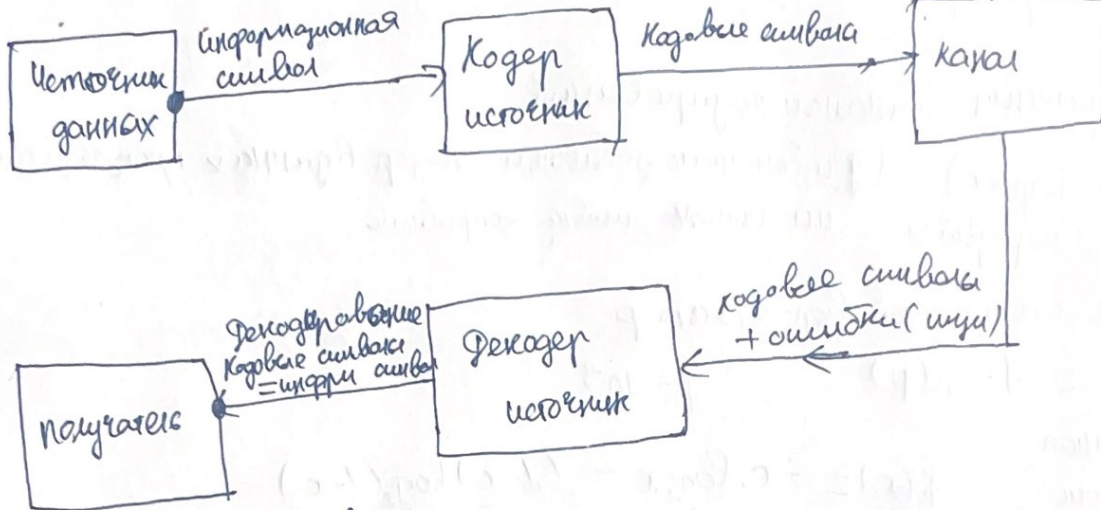 Источник
данных
информационная
символ
Кодер
источник
Кодовые символа
канал
кодовые символы
+ ошибки (
Декодер
источник
Декодирование
Кодовые символы
= инфрм символ
получатель